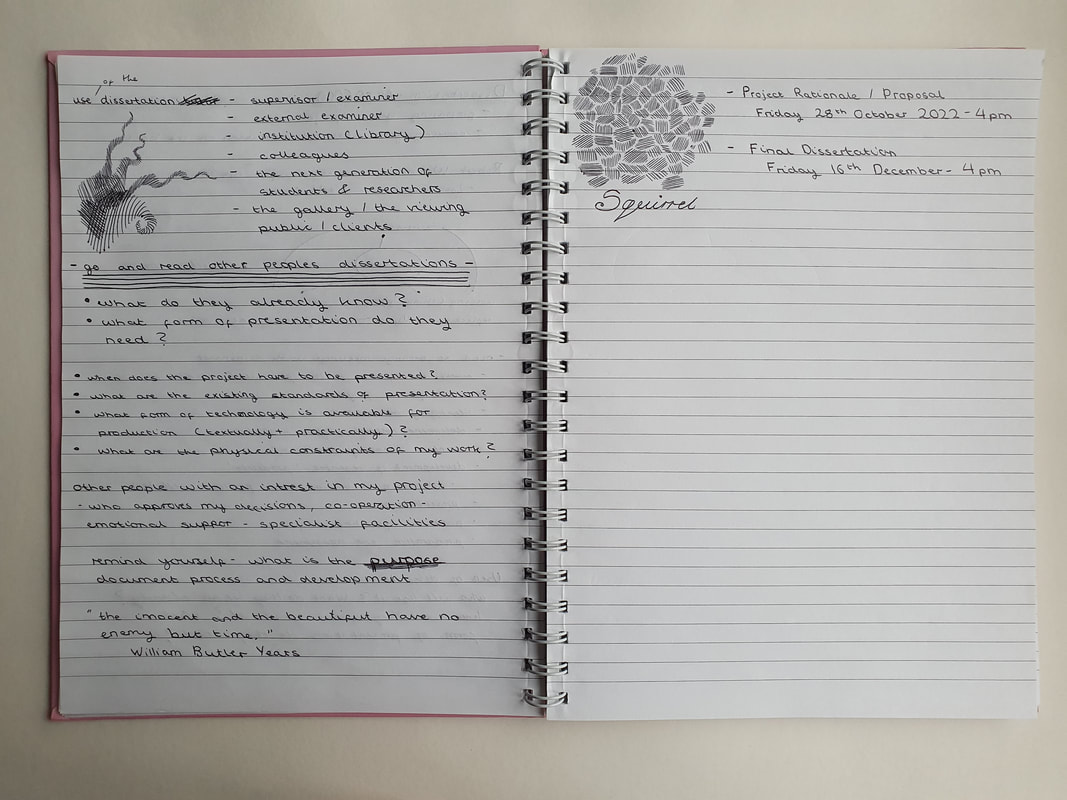 of the
use dissertation - supervisor / examiner
- external examiner
- institution (library)
- colleagues
- the next generation of
students & researchers
- the gallery / the viewing
public / clients
- go and read other peoples dissertations -
• what do they already know?
• what form of presentation do they
need?
• when does the project have to be presented?
• what are the existing standards of presentation?
• what form of technology is available for
production (textually + practically)?
• what are the physical constraints of my work?
other people with an intrest in my project
- who approves my decisions, co-operation -
emotional support - specialist facilities
remind yourself - what is the purpose
document process and development
"the inocent and the beautiful have no
enemy but time."
William Butler Years
Squirrel
- Project Rationale / Proposal
Friday 28th October 2022 - 4pm
- Final Dissertation
Friday 16th December - 4pm